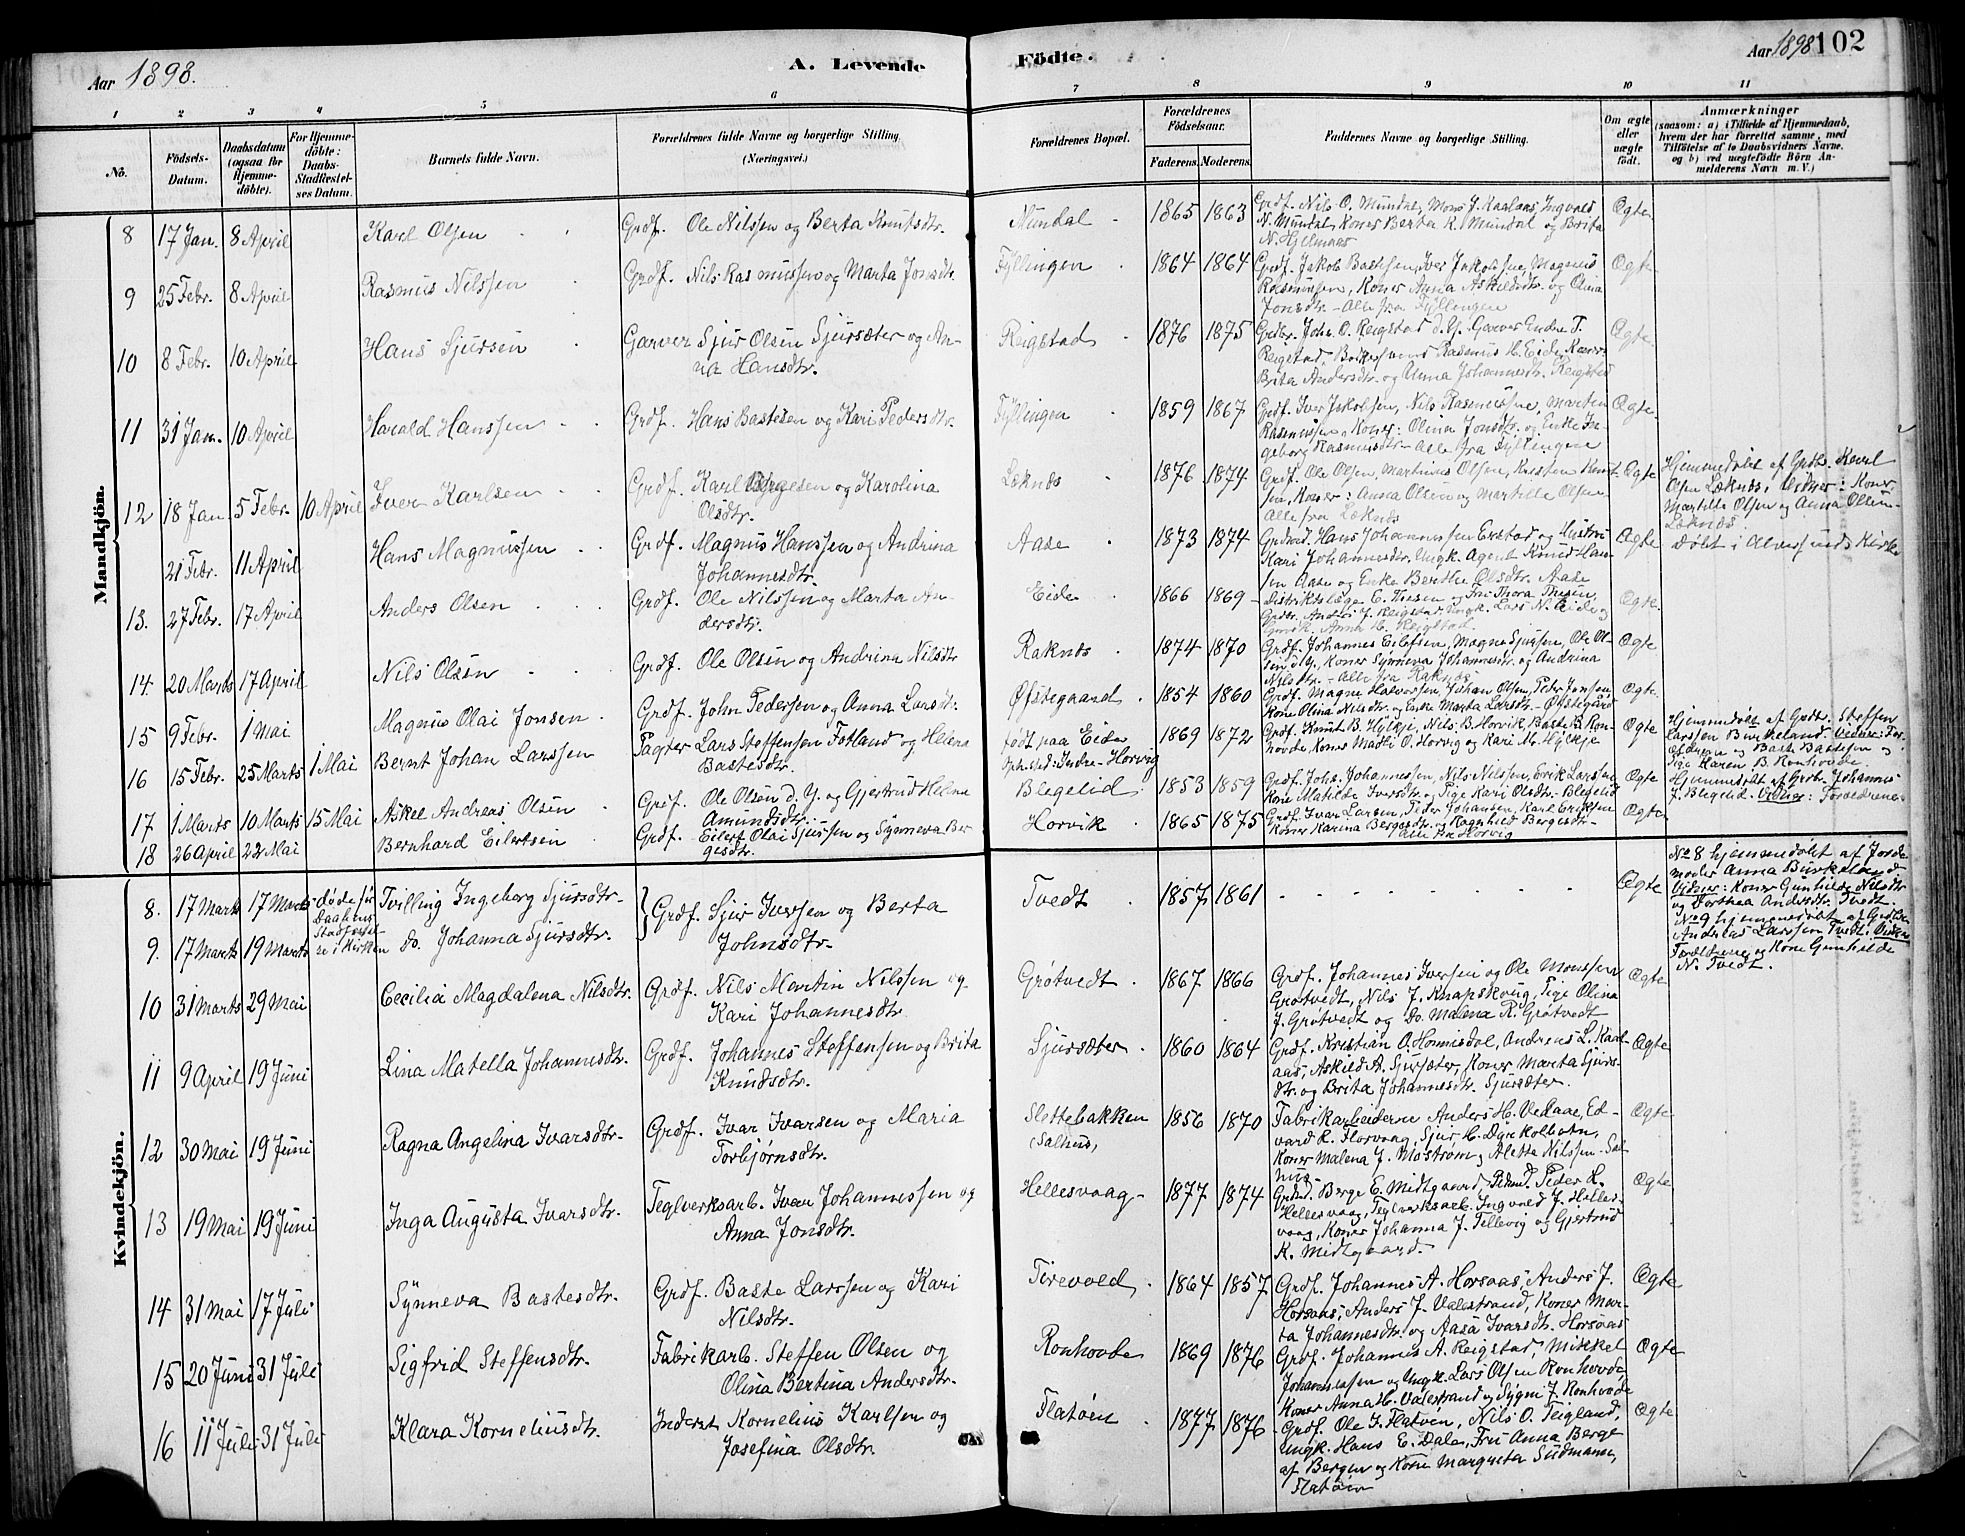 Aar 1898.
A. Levende
Födte.
Aar 1898
102
1 2 3 4 5 6 7 8 9 10 11
No.
Födsels-
Datum.
Daabsdatum
(ogsaa for
Hjemme-
döbte).
For Hjemme-
döbte:
Daabs-
Stadfæstel-
ses Datum.
Barnets fulde Navn.
Forældrenes fulde Navne og borgerlige Stilling.
(Næringsvei.)
Forældrenes Bopæl.
Forældrenes
Födselsaar.
Faderens. Moderens.
Faddernes Navne og borgerlige Stilling.
Om ægte
eller
uægte
født.
Anmærkninger
(saasom: a) i Tilfælde af Hjemmedaab,
hvem der har forrettet samme, med
Tilföielse af to Daabsvidners Navne,
og b) ved uægtefödte Börn An-
melderens Navn m. V.)
Mandkjön.
8 17 Jan. 8 April Karl Olsen Grdf. Ole Nilssen og Berta Knutsdtr. Mundal 1865 1863 Grdf. Nils O. Mundal, Mons J. Kaalaas, Ingvald
N. Mundal, Koner Berta K. Mundal og Brita
N. Hjelmaas Ægte
9 25 Febr. 8 April Rasmus Nilssen Grdf. Nils Rasmussen og Marta Jonsdtr. Fyllingen 1864 1864 Grdf. Jakob Bastesen, Iver Jakobsen, Magnus
Rasmussen, Koner Anna Askildsdtr. og Olina
Jonsdtr. - Alle fra Fyllingen Ægte
10 8 Febr. 10 April Hans Sjursen Garver Sjur Olsen Sjursæter og An-
na Hansdtr. Reigstad 1876 1875 Grdbr. Johs. O. Reigstad d. Y. Garver Endre T.
Reigstad, Rasmus H. Eide, Koner
Brita Andersdtr. og Anna Johannesdtr. Reigstad Ægte
11 31 Jan. 10 April Harald Hanssen Grdf. Hans Bastesen og Kari Pedersdtr. Fyllingen 1859 1867 Grdf. Iver Jakobsen, Nils Rasmussen, Marten
Rasmussen, Koner: Olina Jonsdtr. og Enke In-
geborg Rasmusdtr. - Alle fra Fyllingen Ægte.
12 18 Jan. 5 Febr. 10 April Iver Karlsen Grdf. Karl og Karolina
Olsdtr. Læknes 1876 1874 Grdf. Ole Olsen, Martinus Olsen, Kristen Knut-
sen, Koner: Anna Olsen og Martille Olsen
Alle fra Læknes Ægte Hjemmedøbt af Grdbr. Karl
Olsen Læknes. Vidner: Koner
Martille Olsen og Anna Olsen
Læknes.
21 Febr. 11 April Hans Magnussen Grdf. Magnus Hanssen og Andrina
Johannesdtr. Aase 1873 1874 Hans Johannessen Evstad og Hustru
Kari Johannesdtr. Ungk. Agent Knud Han-
sen Aase og Enke Berthe Olsdtr. Aase Ægte Døbt i Alversunds Kirke
13. 27 Febr. 17 April Anders Olsen Grdf. Ole Nilssen og Marta An-
dersdtr. Eide 1866 1869 Distriktslæge E. Thesen og Fru Thora Thesen,
Grdbr. Anders J. Reigstad, Ungk. Lars N. Eide og
Anna H. Reigstad Ægte.
14. 20 Marts 17 April Nils Olsen Grdf. Ole Olsen og Andrina Nilsdtr Raknes 1874 1870 Grdf. Johannes Eilefsen, Magne Sjursen, Ole Ol-
sen d. Y., Koner Synneva Johannesdtr. og Andrina
Nilsdtr. - Alle fra Raknes Ægte
15 9 Febr. 1 Mai Magnus Olai Jonsen Grdf. John Pedersen og Anna Larsdtr. Øfstegaard 1854 1860 Grdf. Magne Halvorsen, Johan Olsen, Peder Jonsen
Kone Olina Nilsdtr og Enke Marta Larsdtr. - Øfstegård Ægte.
16 15 Febr. 25 Marts 1 Mai Bernt Johan Larssen Pagter Lars Steffensen Fotland og Helena
Bastesdtr. født paa Eide
Indre-Horvig 1869 1872 Grdf. Knut B. Hylkje, Nils B. Horvik, Baste B. Ron-
hovde, Koner Madli O. Horvig og Kari M. Hylkje Ægte Hjemmedøbt af Grdbr. Steffen
Larssen Birkeland. Vidner: For-
ældrene og Baste Bastesen og
Pige Karen B. Ronhovde.
17 1 Marts 10 Marts 15 Mai Askel Andreas Olsen Grdf. Ole Olsen d. Y. og Gjertrud Helena
Amundsdtr. Blegelid 1853 1859 Grdf. Johs. Johannessen, Nils Nilssen, Erik Larssen
Kone Matilde Iversdtr. og Pige Kari Olsdtr. Blegelid Ægte Hjemmedøbt af Grdb. Johannes
J. Blegelid. Vidner: Forældrene
18 26 April 22 Mai Bernhard Eilertsen Grdf. Eilert Olai Sjursen og Synneva Ber-
gesdtr. Horvik 1865 1875 Grdf. Ivar Larsen, Peder Johansen, Karl Eriksen
Koner Karina Bergesdtr. og Ragnhild Bergesdtr-
Alle fra Horvig Ægte
Kvindekjön.
8. 17 Marts 17 Marts døde før
Daabens
Stadfæstel-
se i Kirken Tvilling Ingeborg Sjursdtr. Grdf. Sjur Iversen og Berta
Johnsdtr. Tvedt 1857 1861 Ægte No 8 hjemmedøbt af Jorde-
moder Anna Birkeland
Vidner: Koner Gunhilde Nilsdtr
og Dorthea Andersdtr. Tvedt.
9. 17 Marts 19 Marts do. Johanna Sjursdtr. No 9 hjemmedøbt af Grdbr.
Andreas Larssen Tvedt: Vidner
Forældrene og Kone Gunhilde
N. Tvedt.
10 31 Marts 29 Mai Cecilia Magdalena Nilsdtr. Grdf. Nils Martin Nilssen og
Kari Johannesdtr. Grøtvedt 1867 1866 Grdf. Johannes Iversen og Ole Monssen
Grøtvedt, Nils J. Knapskoug, Pige Olina
J. Grøtvedt og Do. Malena R. Grøtvedt Ægte
11 9 April 19 Juni Lina Matella Johannesdtr. Grdf. Johannes Steffensen og Brita
Knudsdtr. Sjursæter 1860 1864 Grdf. Kristian O. Hommisdal, Andreas L. Kaal-
aas, Askild A. Sjursæter, Koner Marita Sjurs-
dtr. og Brita Johannesdtr. Sjursæter. Ægte
12 30 Mai 19 Juni Ragna Angelina Ivarsdtr. Grdf. Ivar Ivarsen og Maria
Torbjørnsdtr. Slettebakken
Salhus, 1856 1870 Fabrikarbeiderne Anders H. Vedaae, Ed-
vard R. Florvaag, Sjur H. Dyrekolbotn,
Koner Malena J. Mostrøm og Alette Nilssen - Sal-
hus Ægte
13 19 Mai 19 Juni Inga Augusta Ivarsdtr. Teglverksarb. Ivar Johannessen og
Anna Jonsdtr. Hellesvaag 1877 1874 Berge E. Midtgaard, Peder L.
Hellesvaag, Teglverksarb. Ingvald J. Helles-
vaag, Koner Johanna J. Tellevig og Gjertrud
K. Midtgaard. Ægte
14 31 Mai 17 Juli Synneva Bastesdtr. Grdf. Baste Larssen og Kari
Nilsdtr. Tirevold 1864 1857 Grdf. Johannes A. Horsaas, Anders J.
Horsaas, Anders J. Valestrand, Koner Mar-
ta Johannesdtr. og Aasa Ivarsdtr. Horsaas Ægte
15 20 Juni 31 Juli Sigfrid Steffensdtr. Fabrikarb. Steffen Olsen og
Olina Bertina Andersdtr. Ronhovde 1869 1876 Grdf. Johannes A. Reigstad, Mikkel
Johannessen og Ungk. Lars Olsen Ronhovde
Koner Anna H. Valestrand og Sygni J. Ronhovde Ægte
16 11 Juli 31 Juli Klara Korneliusdtr. Inderst Kornelius Karlsen og
Josefina Olsdtr. Flatøen 1877 1876 Grdf. Ole I. Flatøen, Nils O. Teigland,
Ungk. Hans E. Dale, Fru Anna Berge
af Bergen og Kone Margreta Sudmann,
Flatøen Ægte